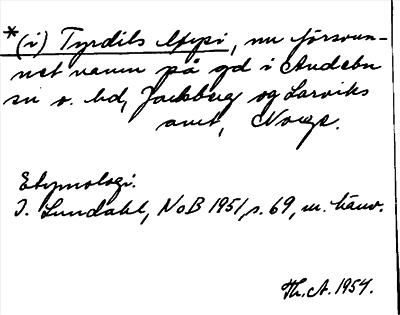 *(i) Tyrdilsløysi, nu försvun-
net namn på gd i Andebu
sn o. hd, Jarlsberg og Larviks
amt, Norge.
Etymologi.
I. Lundahl, NoB 1951, s. 69, m. hänv.
Th. A. 1954.